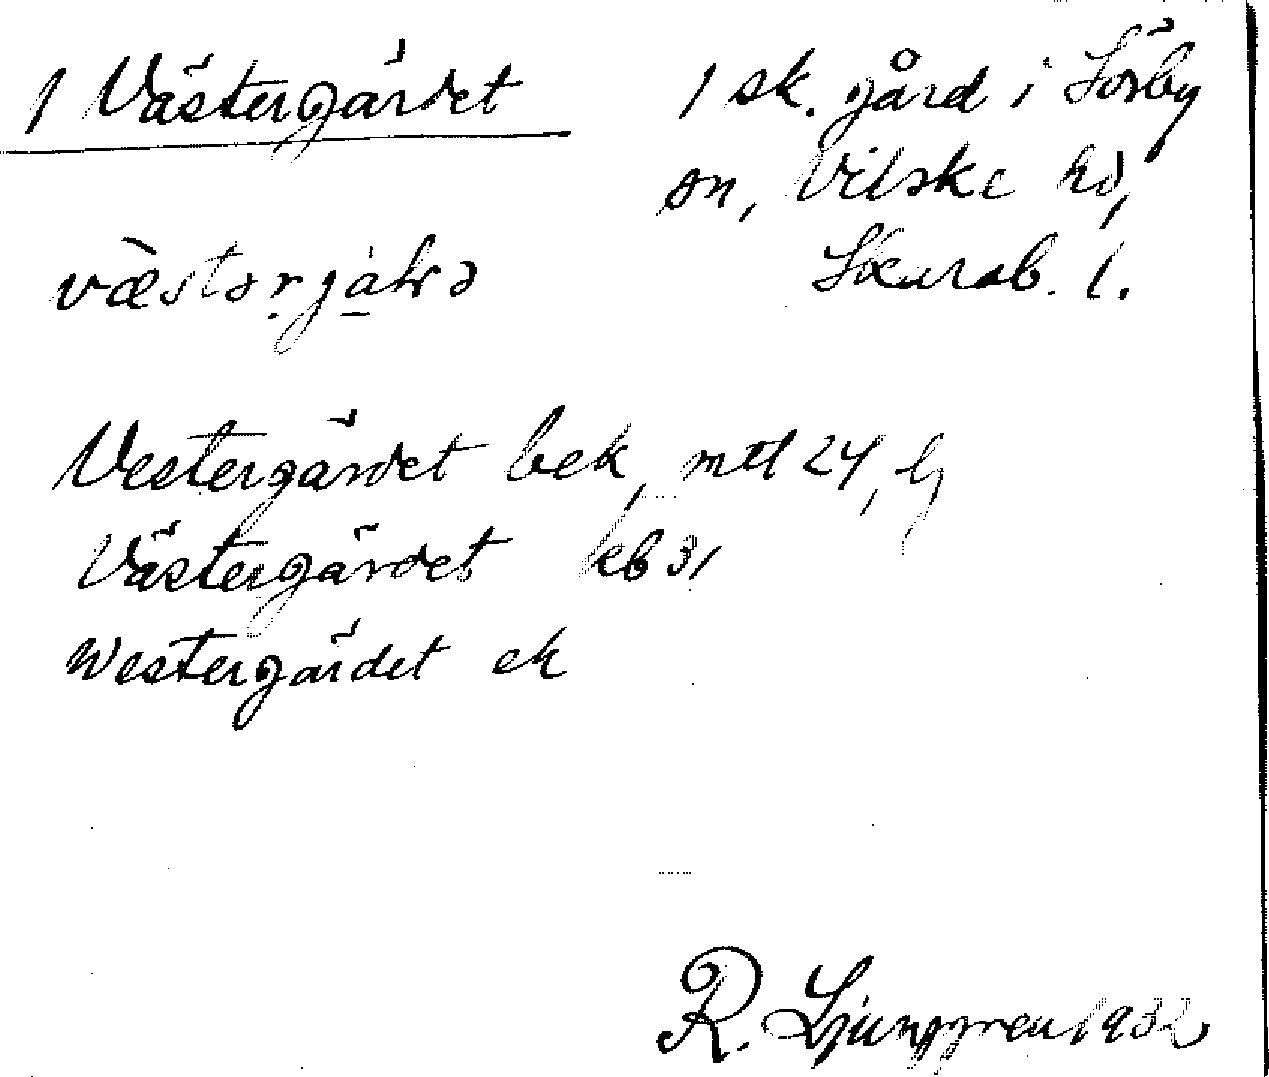 1 Västergärdet
1 sk. gård i Sörby
sn, Vilske hd,
Skarab. l.
Vestergärdet bek, mtl 24, lj
Västergärdet kb 31
Westergärdet ek
R. Ljunggren 1932